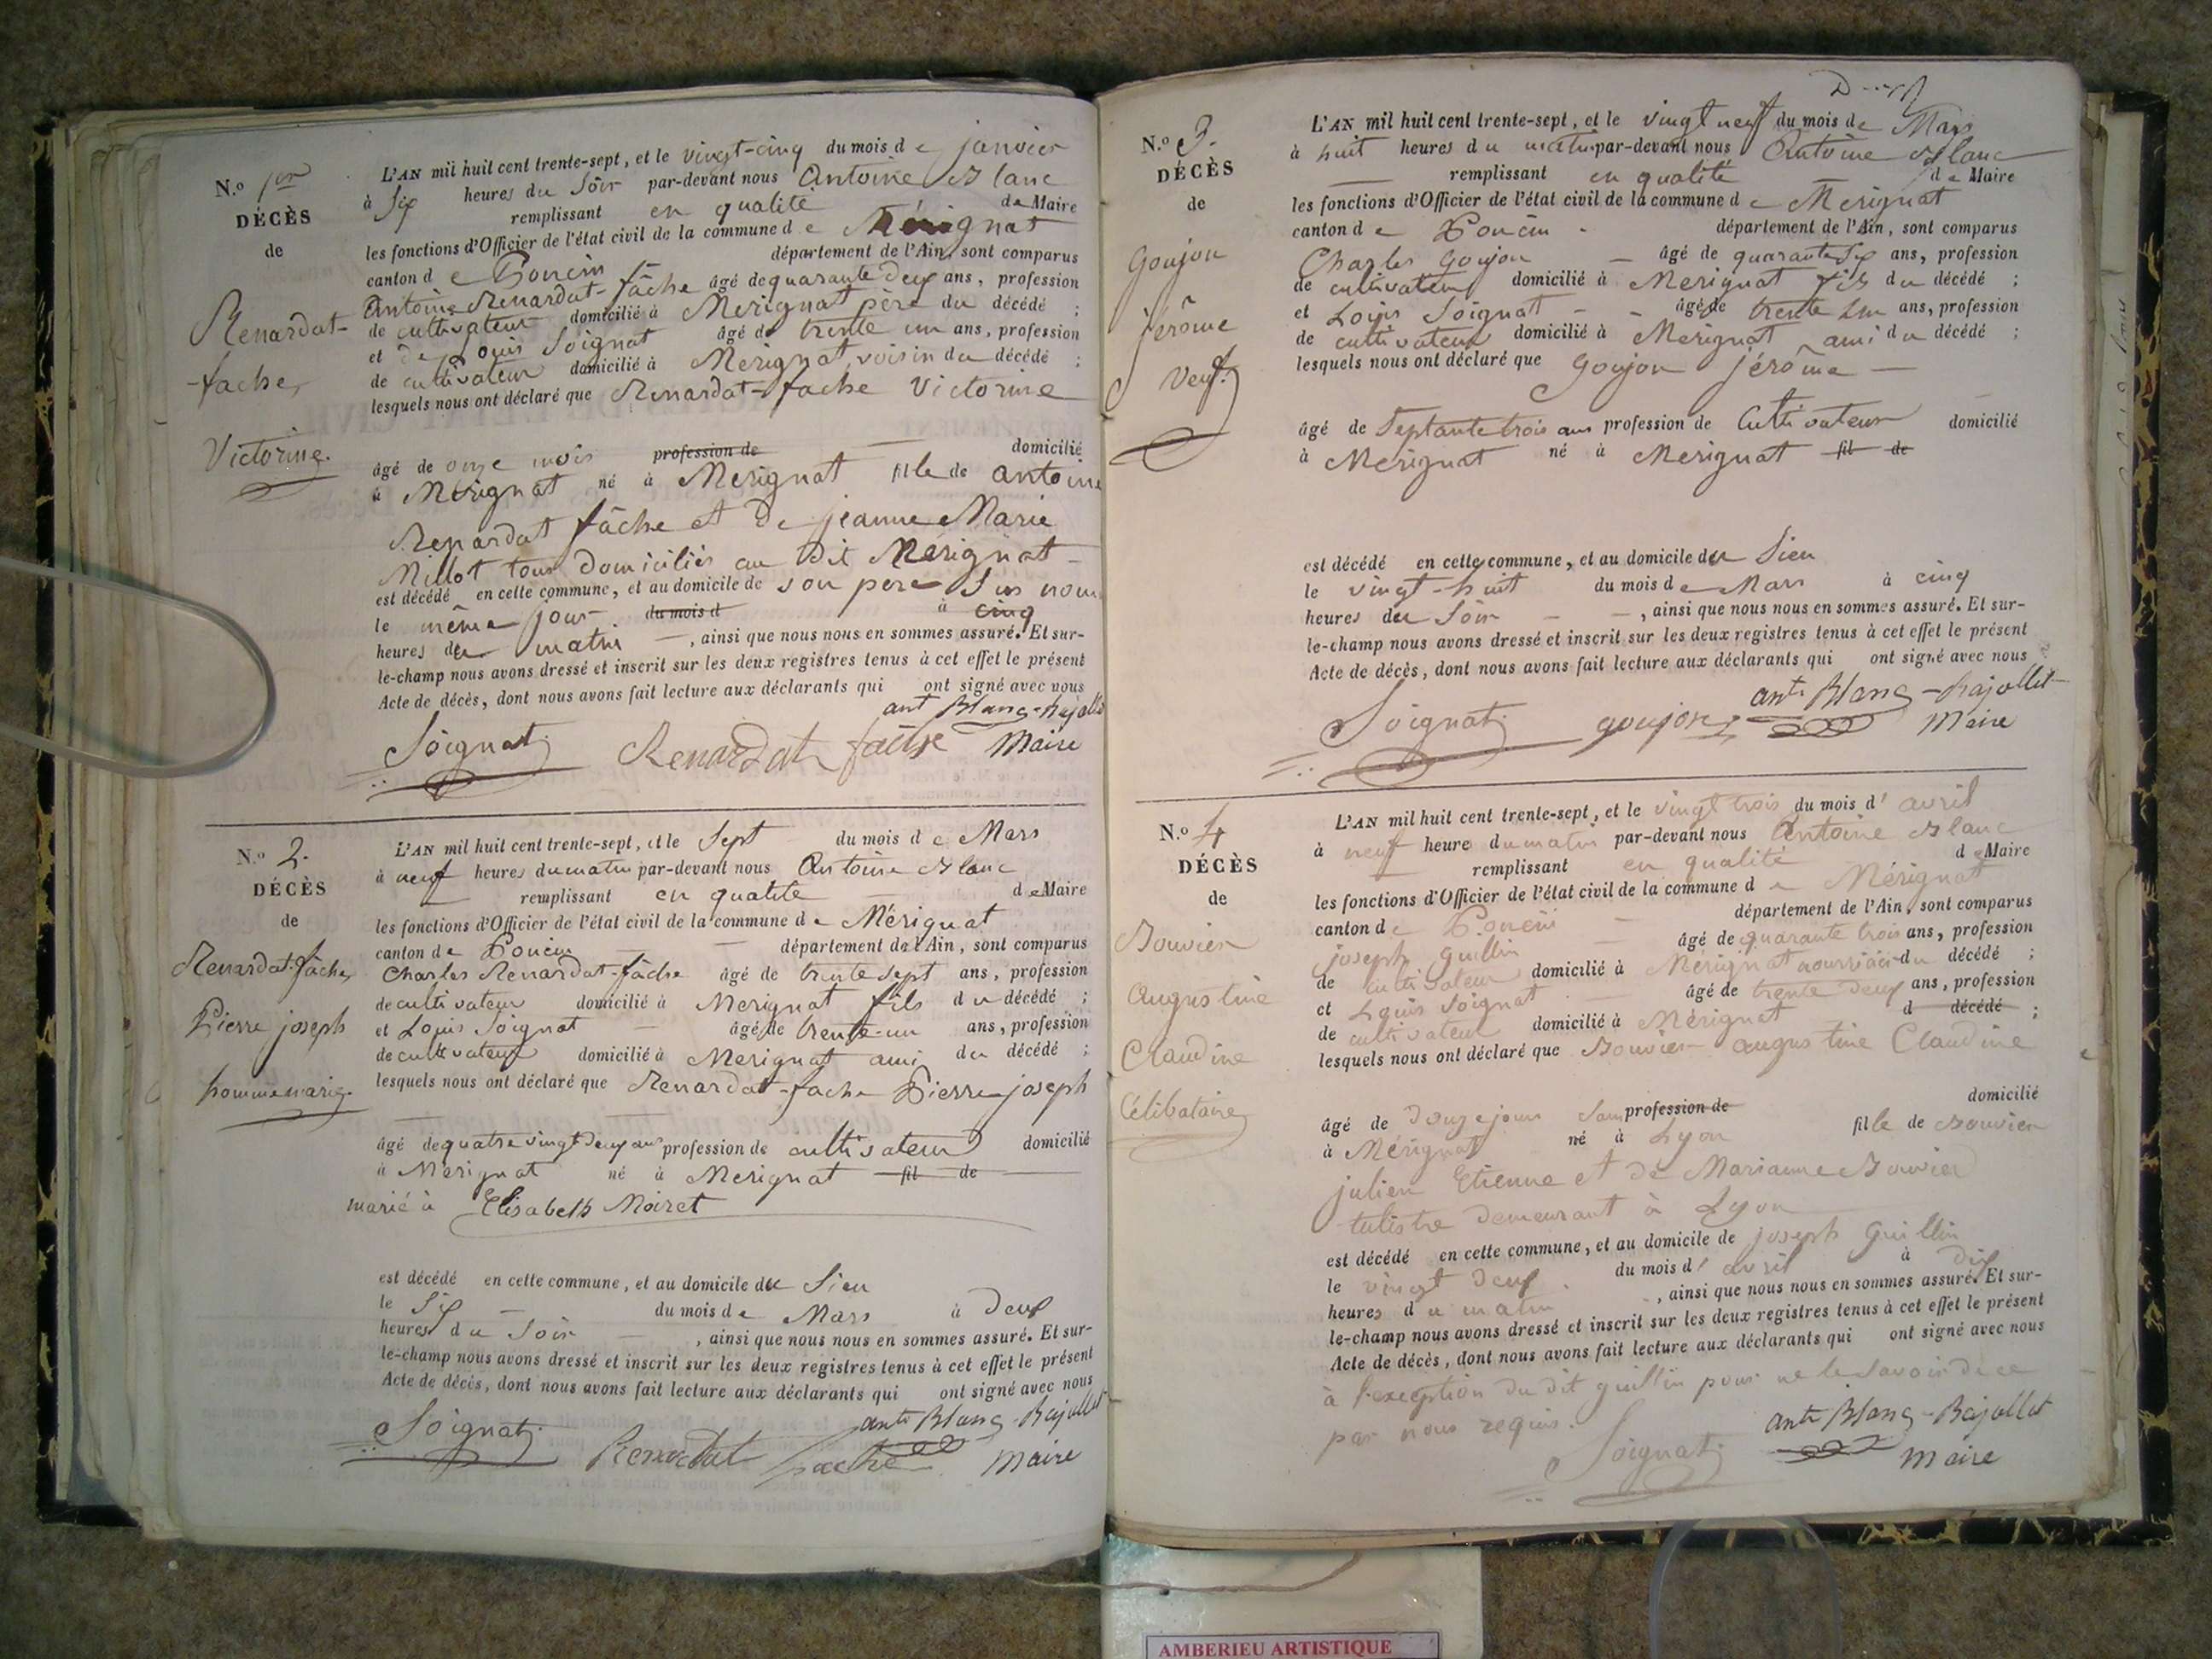 N.º 1er
DÉCÈS
de
Renardat-
-fache,
Victorine.
L'AN mil huit cent trente-sept, et le vingt-cinq du mois de janvier
à six heures du soir par-devant nous Antoine Blanc
remplissant en qualité de Maire
les fonctions d'Officier de l'état civil de la commune de Mérignat
canton de Poncin département de l'Ain, sont comparus
Antoine Renardat-fâche âgé de quarante deux ans, profession
de cultivateur domicilié à Merignat père du décédé ;
et de Louis Soignat âgé de trente un ans, profession
de cultivateur domicilié à Merignat, voisin du décédé ;
lesquels nous ont déclaré que Renardat-fache Victorine
âgé de onze mois profession de domicilié
à Mérignat né à Merignat fille de antoine
Renardat fâche et de jeanne Marie
Millot tous domiciliés au dit Mérignat
est décédé en cette commune, et au domicile de son pere
le même jour du mois d à cinq
heures du matin , ainsi que nous nous en sommes assuré. Et sur-
le-champ nous avons dressé et inscrit sur les deux registres tenus à cet effet le présent
Acte de décès, dont nous avons fait lecture aux déclarants qui ont signé avec nous
ant Blanc-Rajollet
Soignat Renardat fache Maire
N.º 2.
DÉCÈS
de
Renardat-fâche,
Pierre joseph
homme marié.
L'AN mil huit cent trente-sept, et le sept du mois de Mars
à neuf heures du matin par-devant nous Antoine Blanc
remplissant en qualité de Maire
les fonctions d'Officier de l'état civil de la commune de Mérignat
canton de Poncin département de l'Ain, sont comparus
Charles Renardat-fâche âgé de trente sept ans, profession
de cultivateur domicilié à Merignat fils du décédé ;
et Louis Soignat âgé de trente-un ans, profession
de cultivateur domicilié à Merignat ami du décédé ;
lesquels nous ont déclaré que Renardat-fache Pierre joseph
âgé de quatre vingt deux ans profession de cultivateur domicilié
à Mérignat né à Merignat fil de
marié à Elisabeth Moiret
est décédé en cette commune, et au domicile du sien
le six du mois de Mars à deux
heures du soir , ainsi que nous nous en sommes assuré. Et sur-
le-champ nous avons dressé et inscrit sur les deux registres tenus à cet effet le présent
Acte de décès, dont nous avons fait lecture aux déclarants qui ont signé avec nous
ant Blanc-Rajollet
Soignat Renardat fache Maire
N.º 3.
DÉCÈS
de
Goujon
jérôme
Veuf.
L'AN mil huit cent trente-sept, et le vingt neuf du mois de Mars
à huit heures du matin par-devant nous Antoine Blanc
remplissant en qualité de Maire
les fonctions d'Officier de l'état civil de la commune de Merignat
canton de Poncin département de l'Ain, sont comparus
Charles Goujon âgé de quarante six ans, profession
de cultivateur domicilié à Merignat fils du décédé ;
et Louis Soignat âgé de trente un ans, profession
de cultivateur domicilié à Merignat ami du décédé ;
lesquels nous ont déclaré que Goujon jérôme
âgé de Septante trois ans profession de Cultivateur domicilié
à Merignat né à Merignat fil de
est décédé en cette commune, et au domicile du sien
le vingt-huit du mois de Mars à cinq
heures du soir , ainsi que nous nous en sommes assuré. Et sur-
le-champ nous avons dressé et inscrit sur les deux registres tenus à cet effet le présent
Acte de décès, dont nous avons fait lecture aux déclarants qui ont signé avec nous
ant Blanc-Rajollet
Soignat goujon Maire
N.º 4
DÉCÈS
de
Bouvier
augustine
Claudine
Célibataire
L'AN mil huit cent trente-sept, et le vingt trois du mois d' avril
à neuf heure du matin par-devant nous Antoine Blanc
remplissant en qualité de Maire
les fonctions d'Officier de l'état civil de la commune de Mérignat
canton de Poncin département de l'Ain, sont comparus
joseph guillin âgé de quarante trois ans, profession
de cultivateur domicilié à Mérignat du décédé ;
et Louis Soignat âgé de trente deux ans, profession
de cultivateur domicilié à Mérignat d décédé ;
lesquels nous ont déclaré que Bouvier augustine Claudine
âgé de douze jours sans profession de domicilié
à Mérignat né à Lyon fille de Bouvier
julien Etienne et de Marianne Bouvier
tulistre demeurant à Lyon
est décédé en cette commune, et au domicile de joseph Guillin
le vingt deux du mois d' avril à dix
heures du matin , ainsi que nous nous en sommes assuré. Et sur-
le-champ nous avons dressé et inscrit sur les deux registres tenus à cet effet le présent
Acte de décès, dont nous avons fait lecture aux déclarants qui ont signé avec nous
à l'exception du dit guillin pour ne le savoir de ce
par nous requis.
ant Blanc-Rajollet
Soignat Maire
AMBERIEU ARTISTIQUE